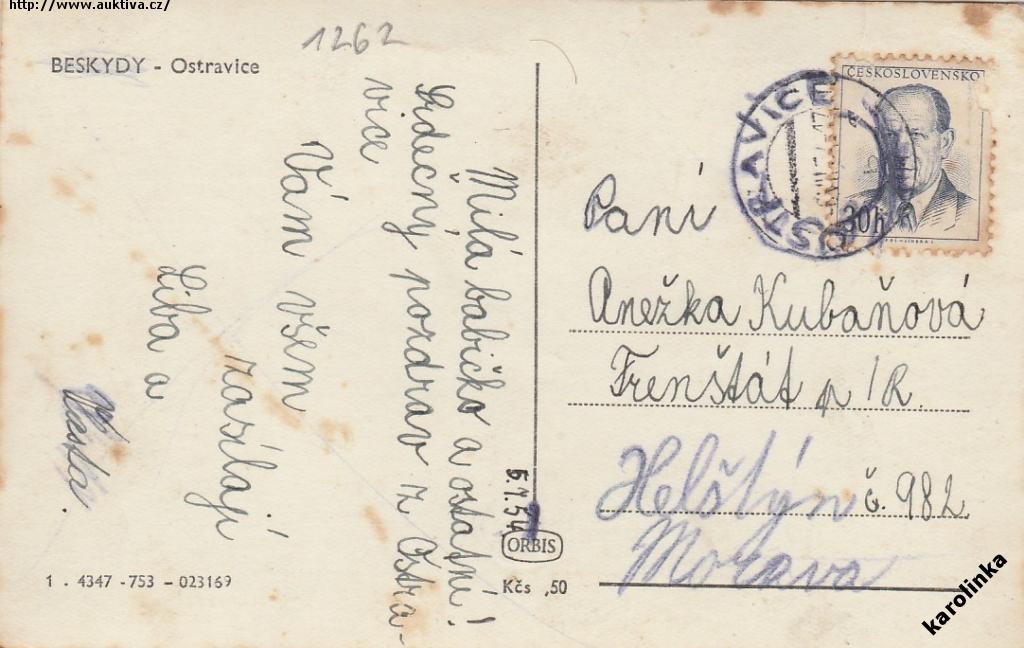 http://www.auktiva.cz/
1262
BESKYDY - Ostravice
Milá babičko a ostatní!
Srdečný pozdrav z Ostra-
vice
Vám všem
zasílají
Liba a
ČESKOSLOVENSKO
30h
OSTRAVICE
Paní
Anežka Kubaňová
Frenštát p/R.
Helštýn č. 982
Morava
5.7.54
ORBIS
Kčs ,50
1 . 4347 -753 - 023169
karolinka